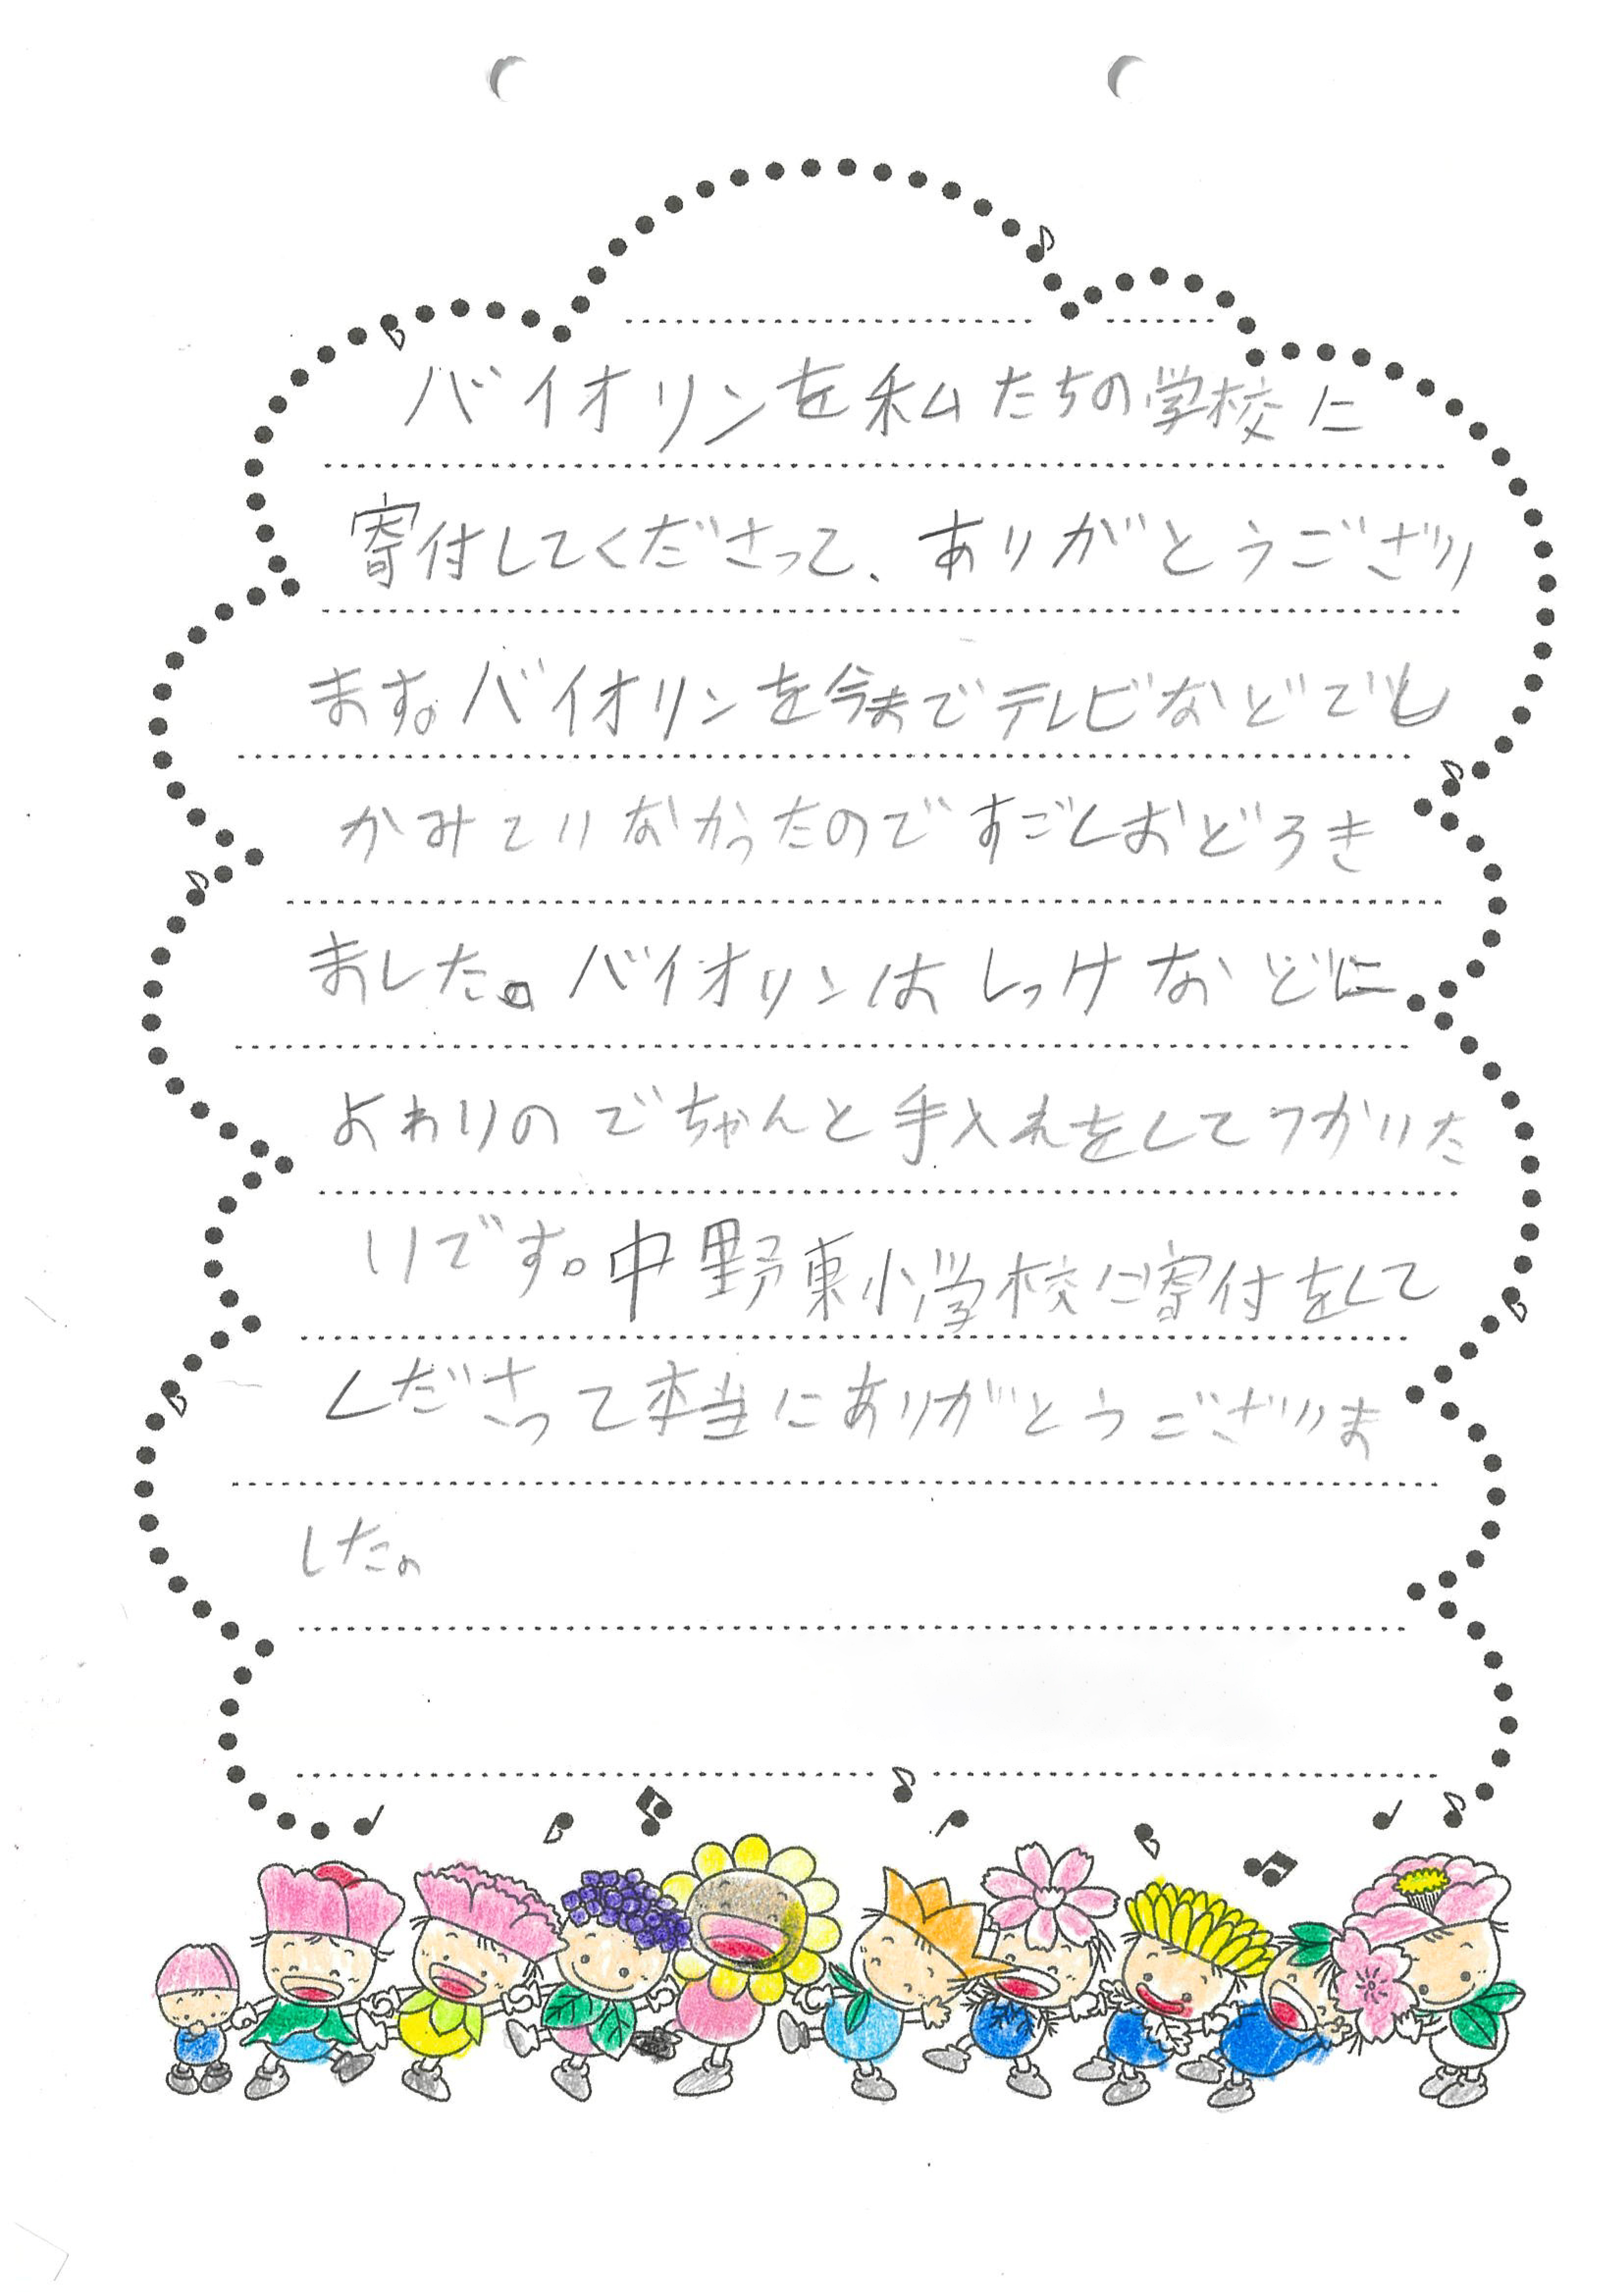 バイオリンを私たちの学校に
寄付してくださって、ありがとうござい
ます。バイオリンを今までテレビなどでし
かみていなかったのですごくおどろき
ました。バイオリンはしっけなどに
よわいのでちゃんと手入れをしてつかいた
いです。中野東小学校に寄付をして
くださって本当にありがとうございま
した。